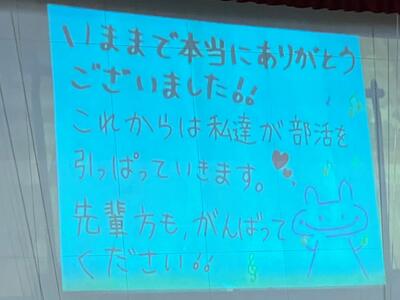 いままで本当にありがとう
ございました!!
これからは私達が部活を
引っぱっていきます。
先輩方も、がんばって
ください!!